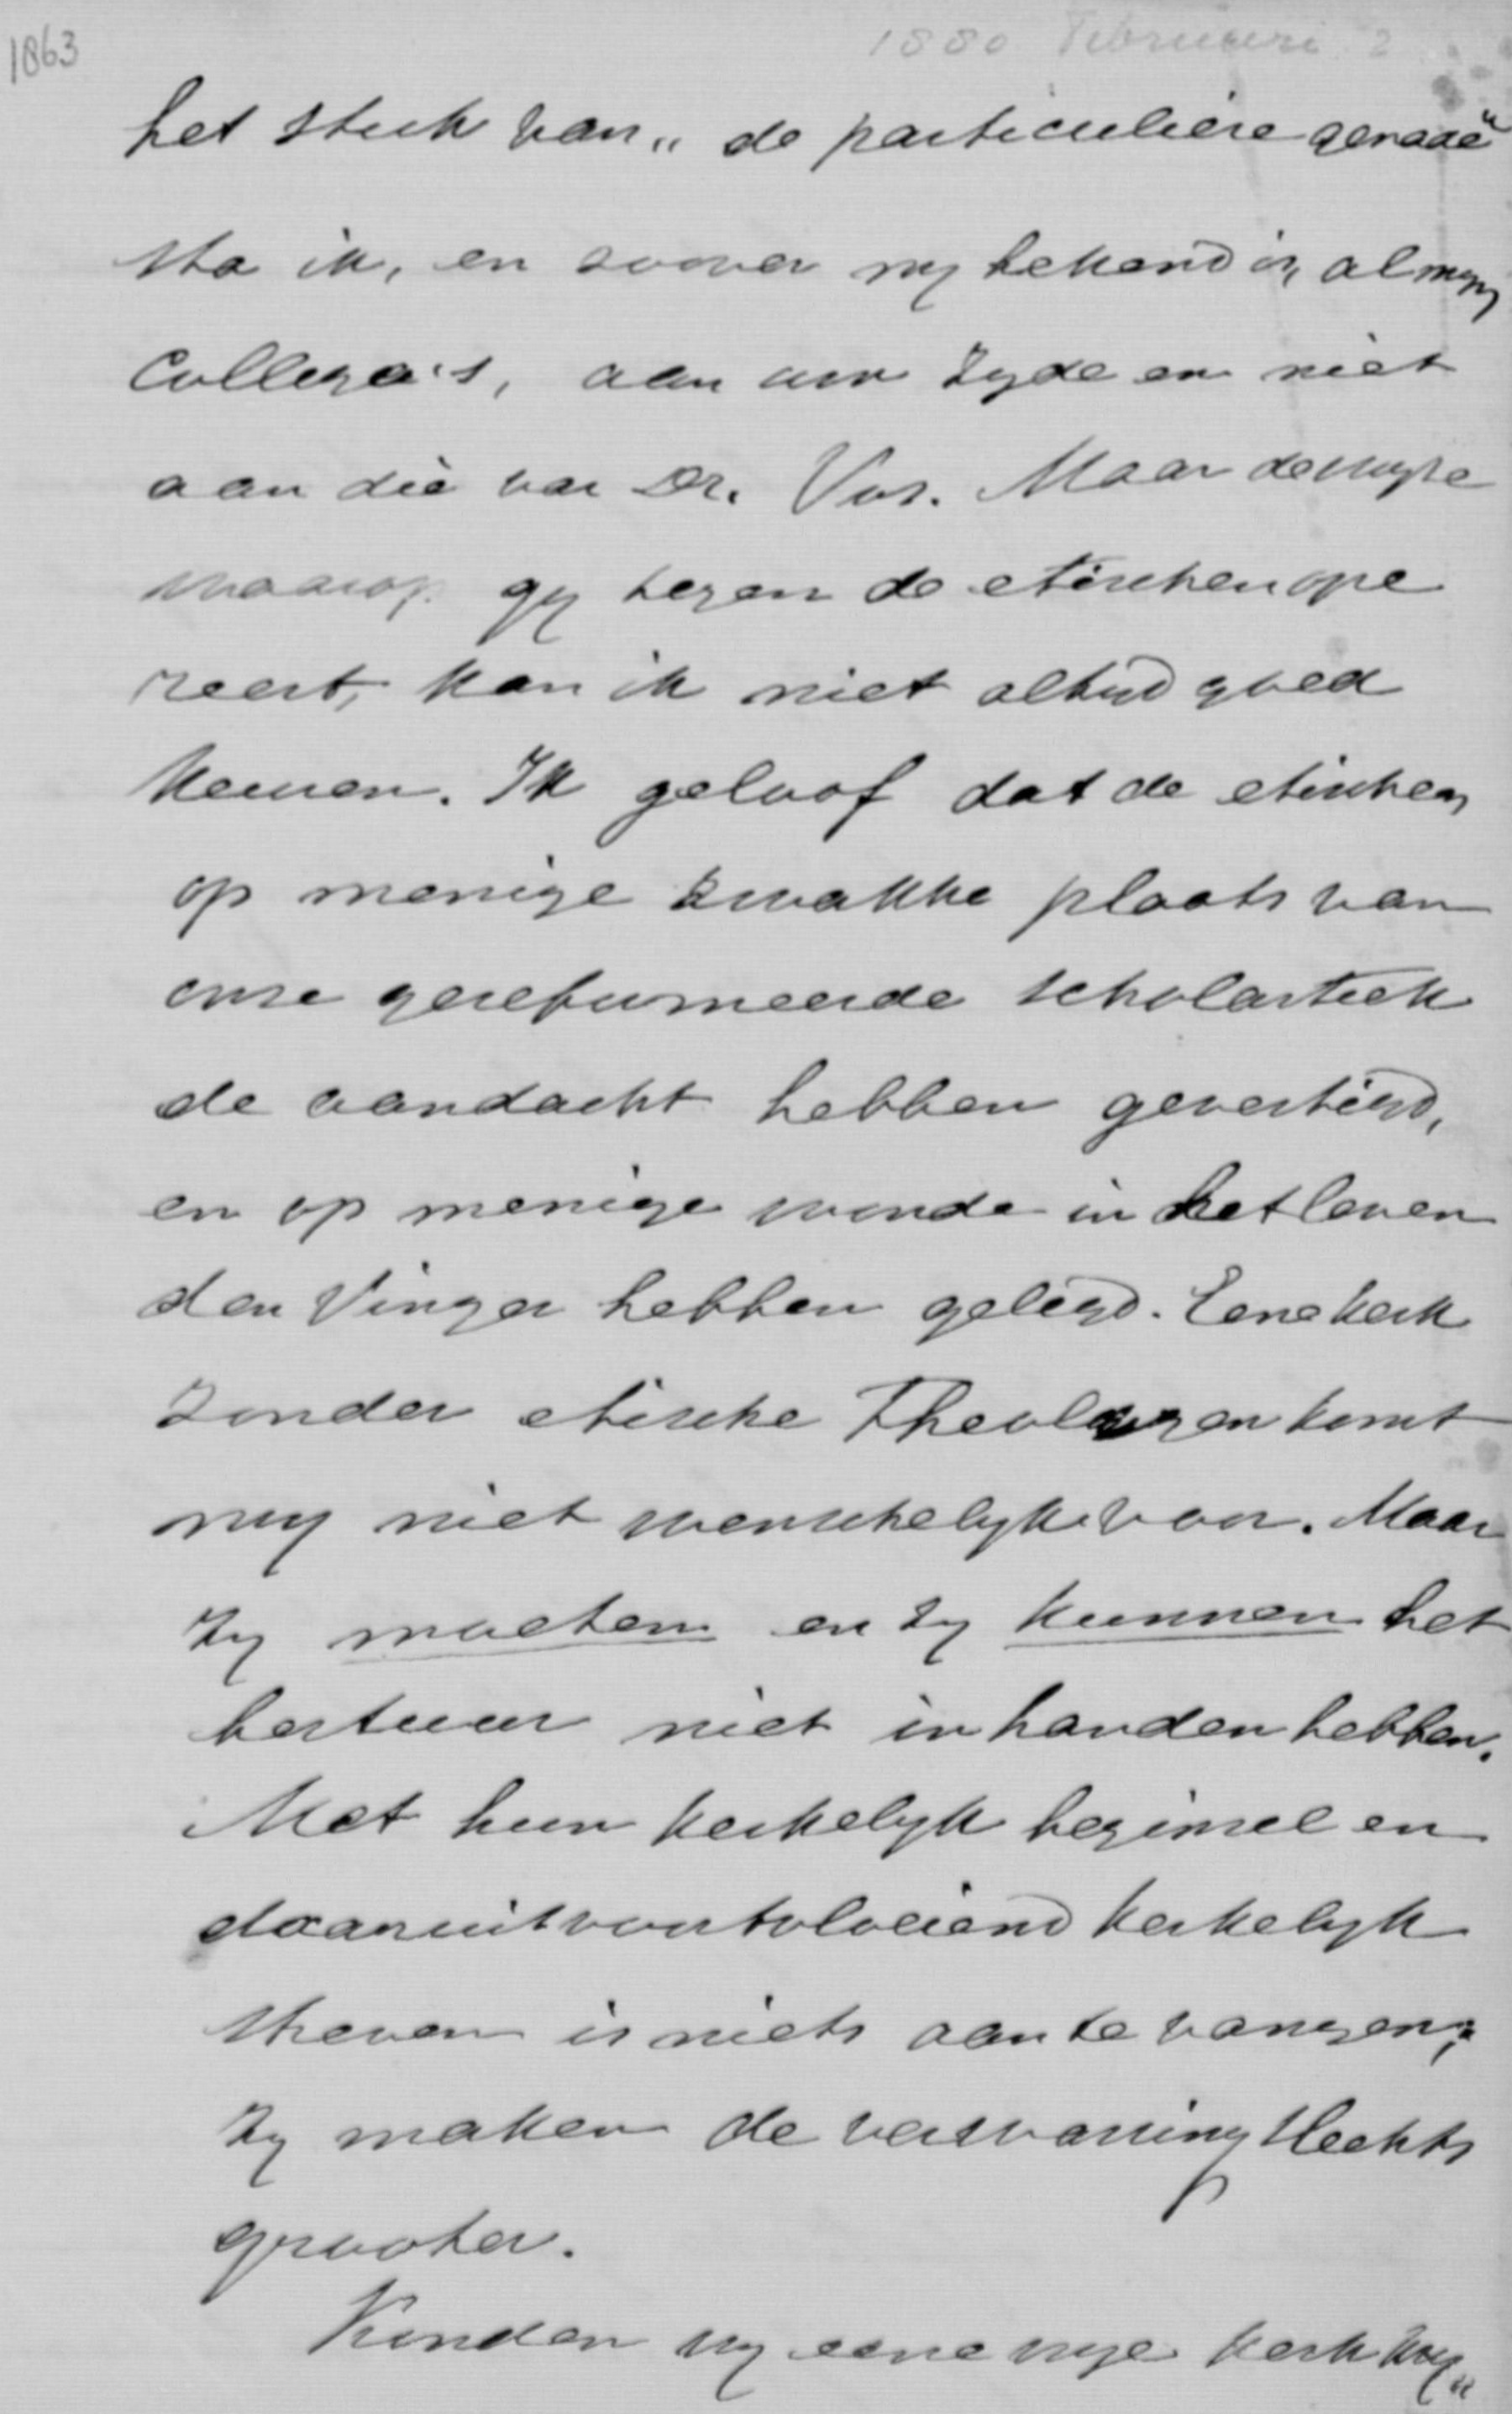 1863
1880 Februari 2
het stuk van „de particuliere genade"
sta ik, en zoover my bekend is, al myn
Collega's, aan uw zyde en niet
aan die van Dr. Vos. Maar de wyze
waarop gy tegen de etischen ope
reert, kan ik niet altyd goed
keuren. Ik geloof dat de etischen
op menige zwakke plaats van
onze gereformeerde scholastiek
de aandacht hebben gevestigd,
en op menige wonde in het leven
den vinger hebben gelegd. Eene kerk
zonder etische Theologen komt
my niet wenschelyk voor. Maar
zy moeten en zy kunnen het
bestuur niet in handen hebben.
Met hun kerkelyk beginsel en
daaruit voortvloeiend kerkelyk
streven is niets aan te vangen;
zy maken de verwarring slechts
grooter.
Konden wy eene vrye kerk kry„